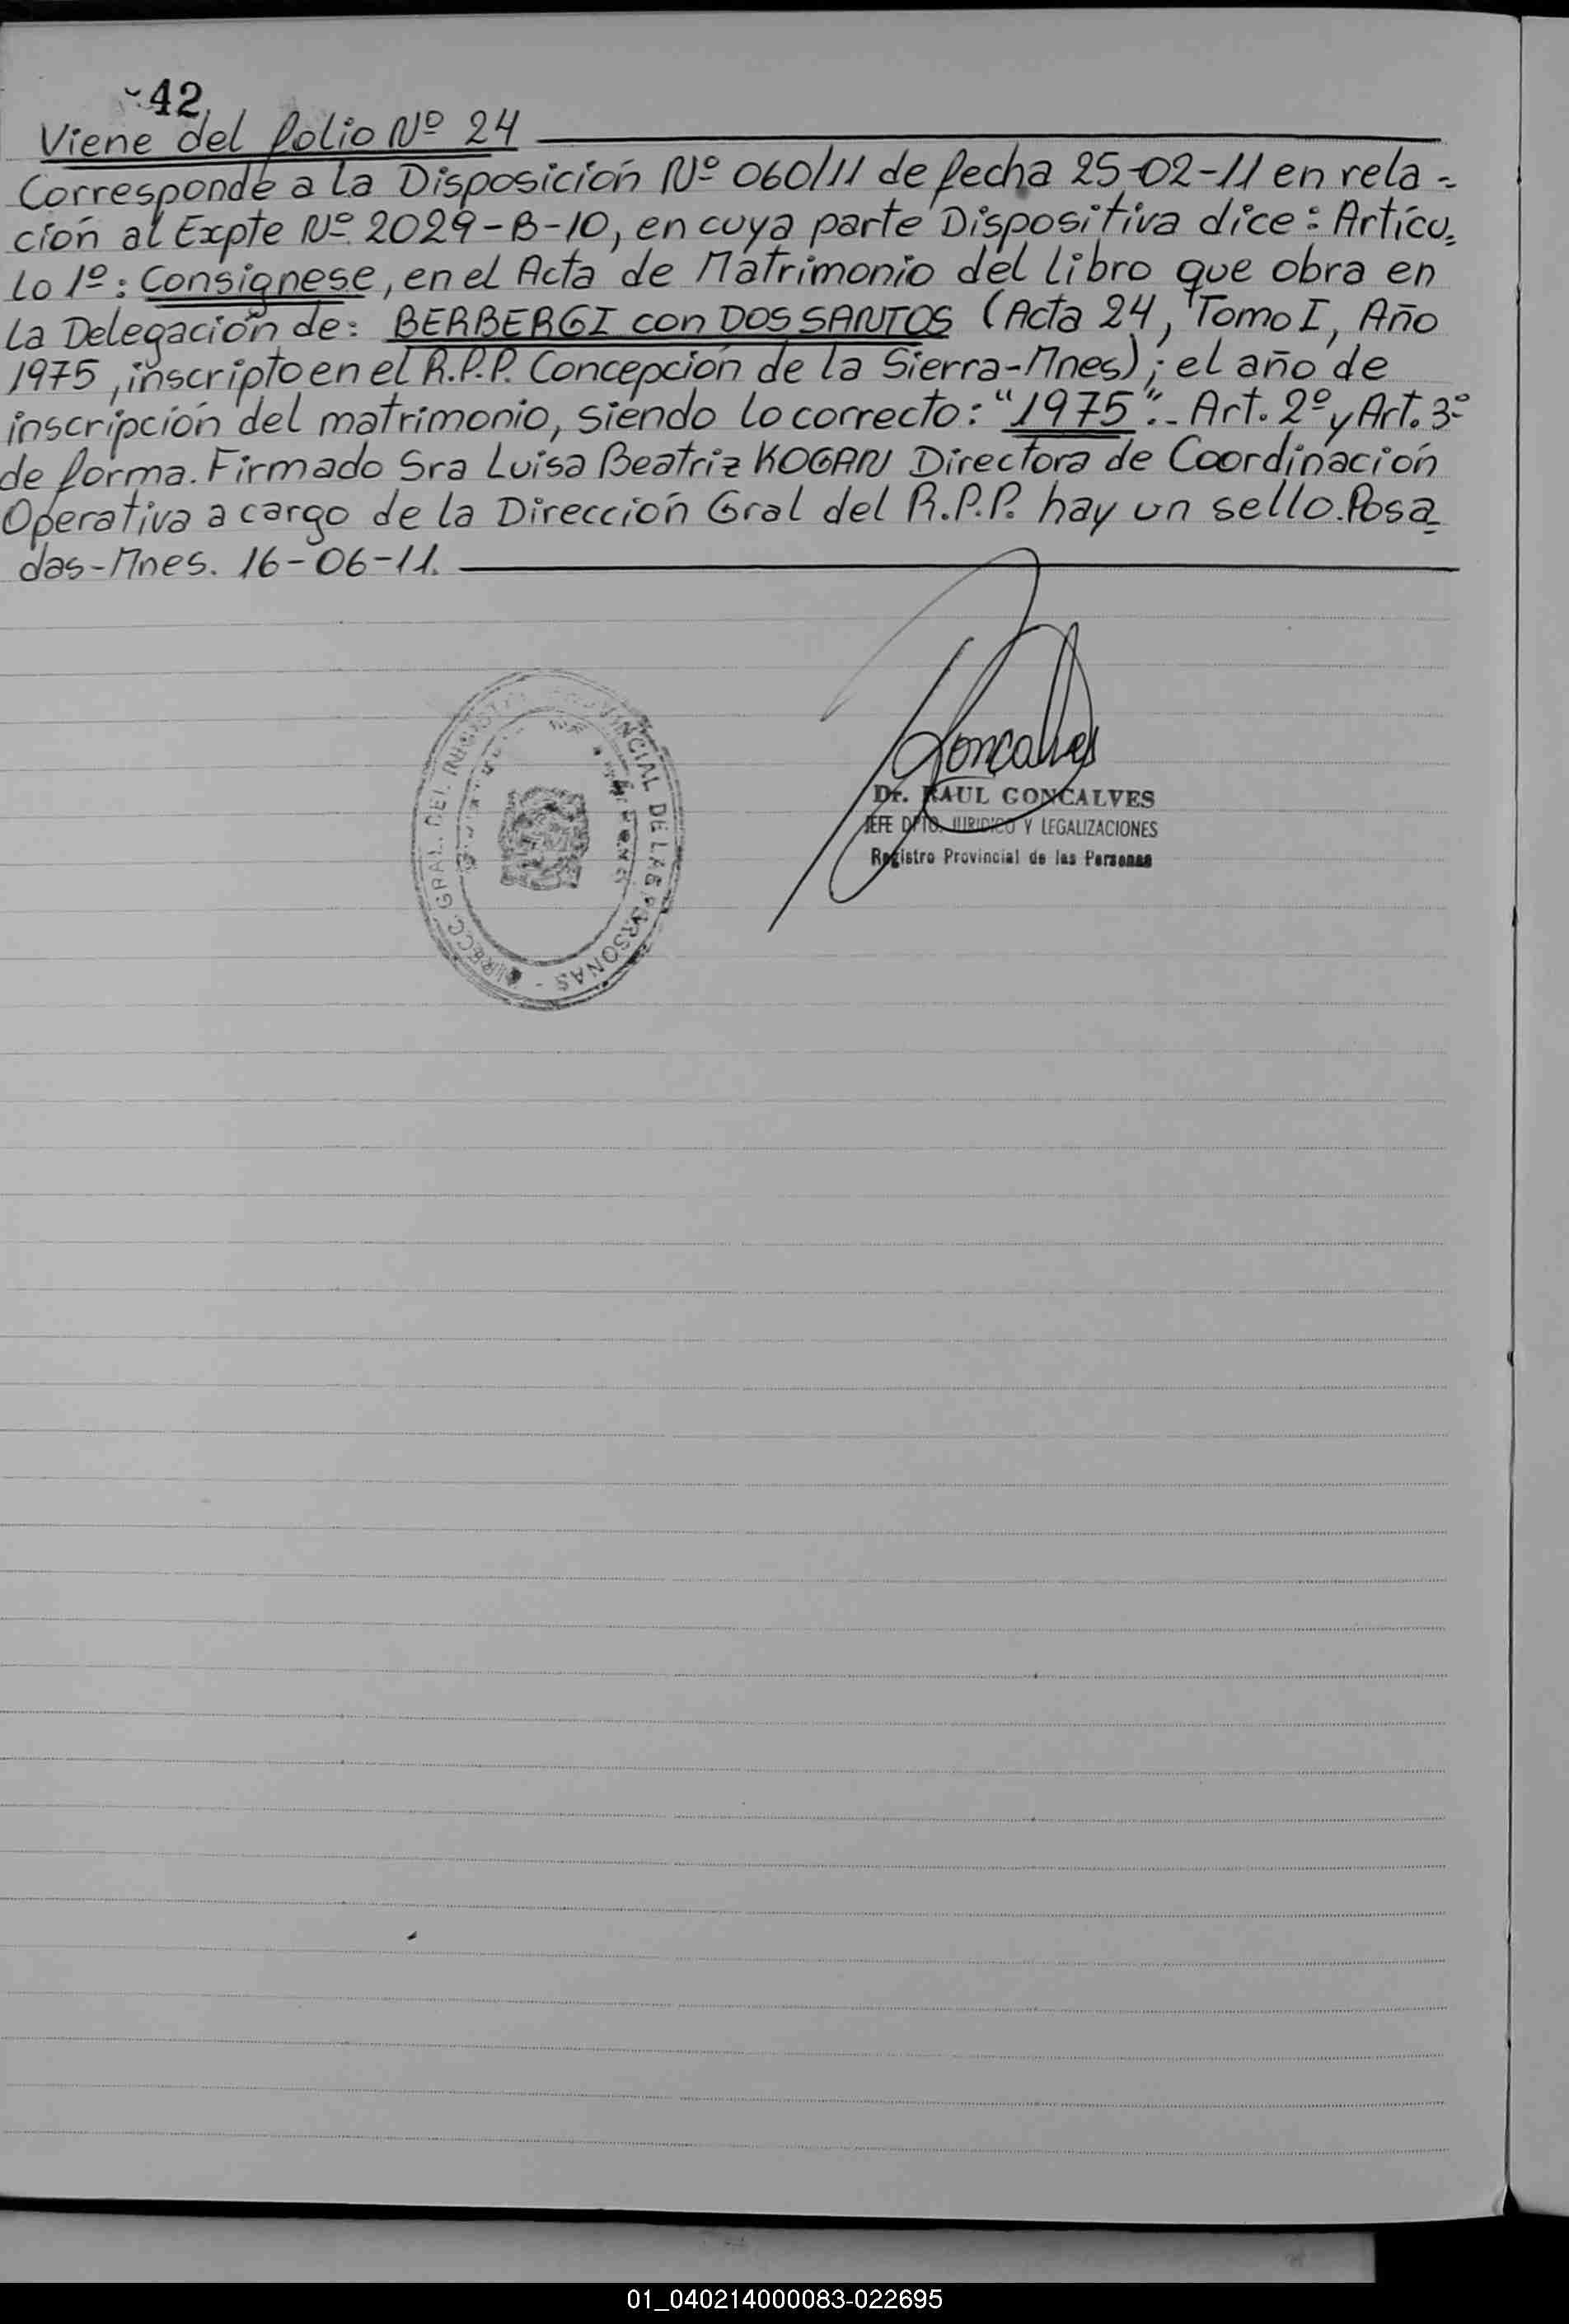 42
Viene del folio Nº 24
Corresponde a la Disposición Nº 060/11 de fecha 25-02-11 en rela=
ción al Expte Nº 2029-B-10, en cuya parte Dispositiva dice: Artícu=
lo 1º: Consignese, en el Acta de Matrimonio del libro que obra en
la Delegación de: BERBERGI con DOS SANTOS (Acta 24, Tomo I, Año
1975, inscripto en el R.P.P. Concepción de la Sierra-Mnes); el año de
inscripción del matrimonio, siendo lo correcto: "1975".- Art. 2º y Art. 3º
de forma. Firmado Sra Luisa Beatriz KOGAN Directora de Coordinación
Operativa a cargo de la Dirección Gral del R.P.P. hay un sello. Posa=
das-Mnes. 16-06-11.
Goncalves
Dr. RAUL GONCALVES
JEFE DPTO. JURIDICO Y LEGALIZACIONES
Registro Provincial de las Personas
GRAL. DEL PROVINCIAL DE LAS PERSONAS -
01_040214000083-022695